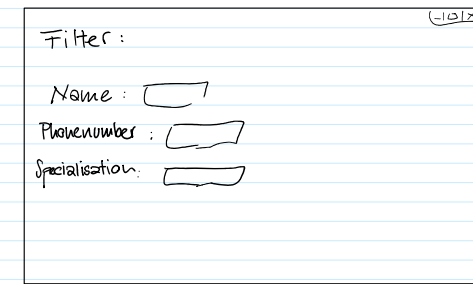 Filter:
Name:
Phonenumber:
Specialisation: